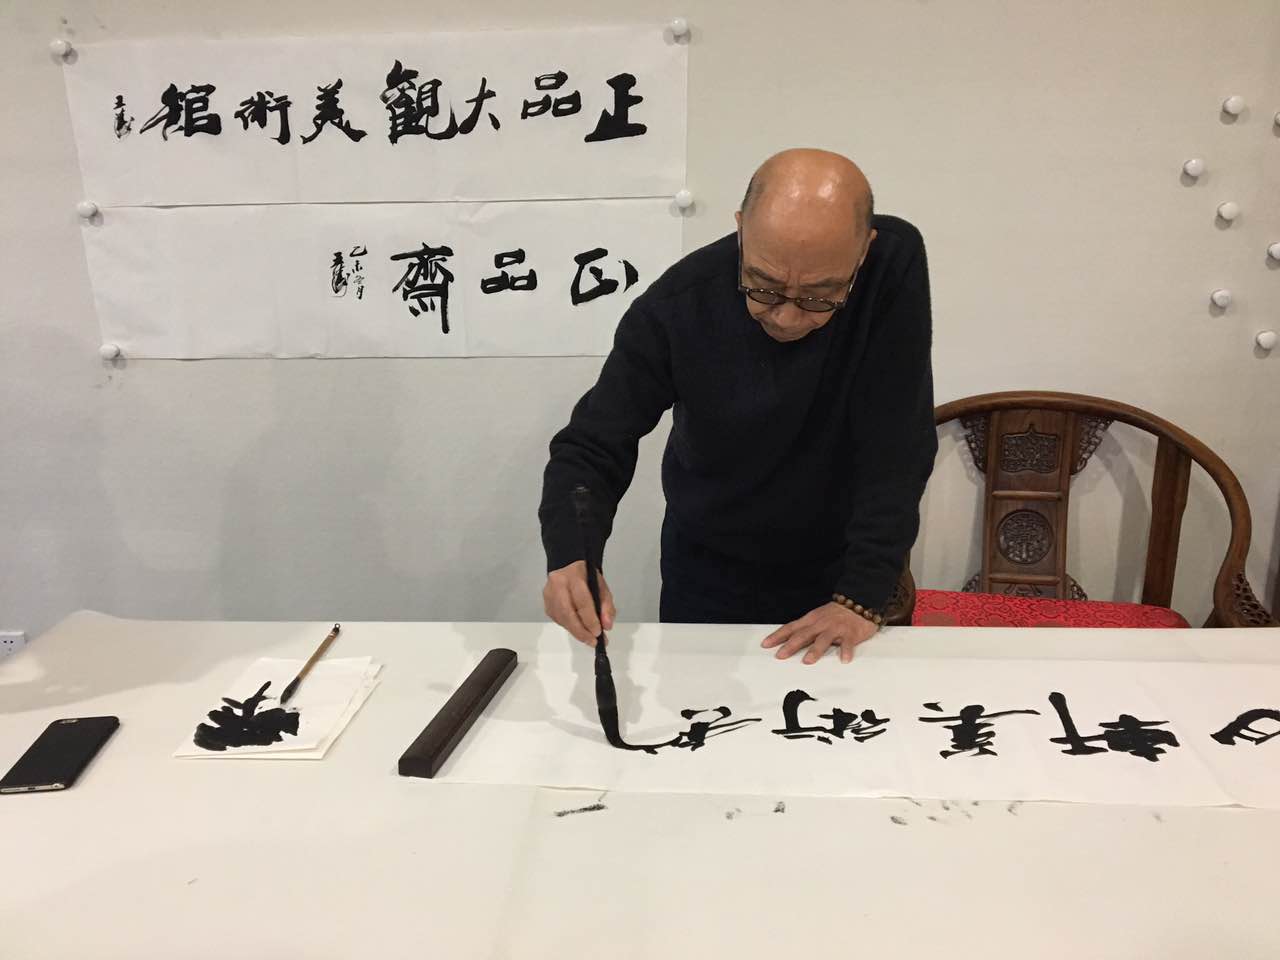 正品大觀美術館
正品齋
乙未
軒美術